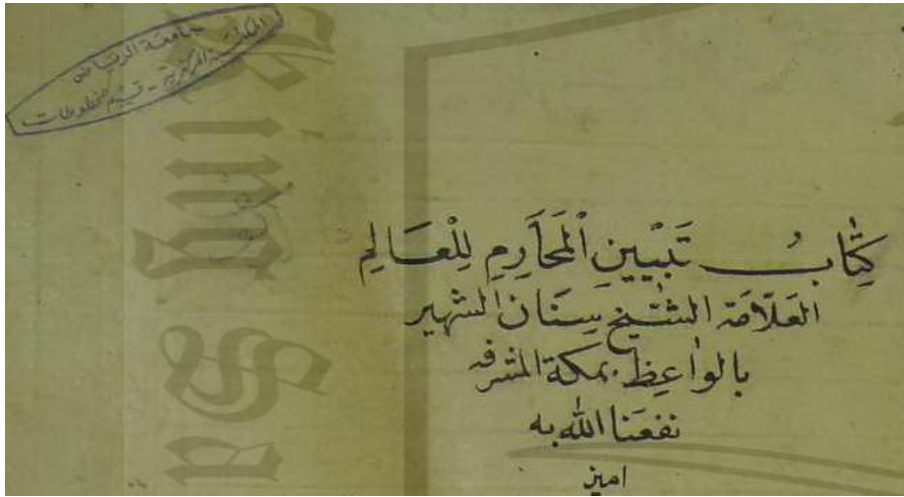 جامعة الرياض
المكتبة المركزية - قسم المخطوطات
كِتَابُ تَبْيِينِ الْمَحَارِمِ لِلْعَالِمِ
العَلَّامَة الشَّيْخ سِنَان الشهير
بالواعِظ بمكة المشرفه
نفعَنا الله به
امين